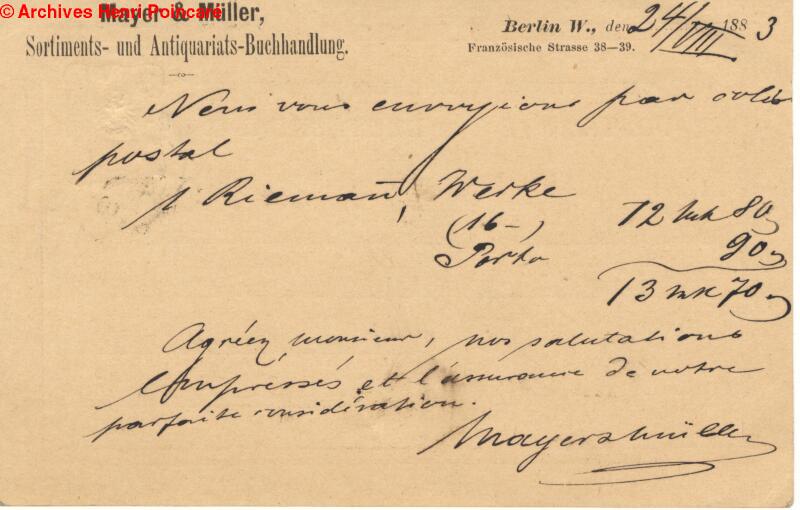 © Archives Henri Poincaré
Mayer & Müller,
Sortiments- und Antiquariats-Buchhandlung.
Berlin W., den 24/VIII 1883
Französische Strasse 38—39.
Nous vous envoyions par colis
postal
1 Riemann, Werke
(16-) 12 Mk 80
Porto 90
13 Mk 70
Agréez, monsieur, nos salutations
empressés et l'assurance de notre
parfaite considération.
Mayer & Müller